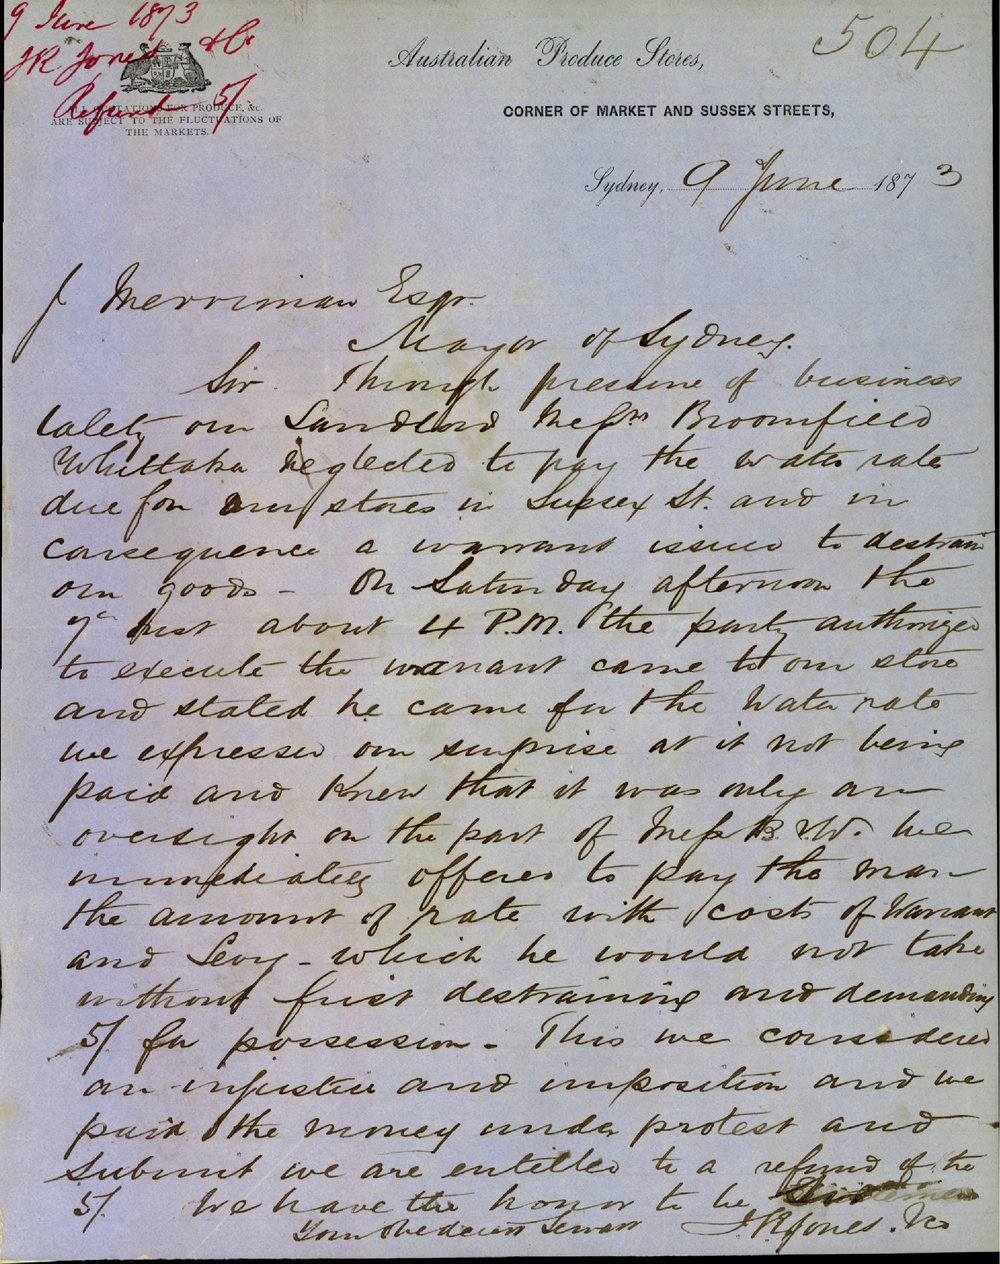 9 June 1873
JR Jones & Co
Refund 5/
504
Australian Produce Stores,
ALL QUOTATIONS FOR PRODUCE, &c.
ARE SUBJECT TO THE FLUCTUATIONS OF
THE MARKETS.
CORNER OF MARKET AND SUSSEX STREETS,
Sydney, 9 June 1873
J Merriman Esqr.
Mayor of Sydney.
Sir Through pressure of business
lately our Landlord Messrs Broomfield
Whittaker neglected to pay the water rate
due for our stores in Sussex St. and in
consequence a warrant issued to destrain
our goods - On Saturday afternoon the
7th Inst about 4 P.M. the party authorized
to execute the warrant came to our store
and stated he came for the Water rate
we expressed our surprise at it not being
paid and knew that it was only an
oversight on the part of Mess B & W. we
immediately offered to pay the man
the amount of rate with costs of Warrant
and Levy - which he would not take
without first destraining and demanding
5/ for possession - This we considered
an injustice and imposition and we
paid the money under protest and
submit we are entitled to a refund of the
5/. We have the honor to be
Your obedient Servant J.R. Jones. & Co